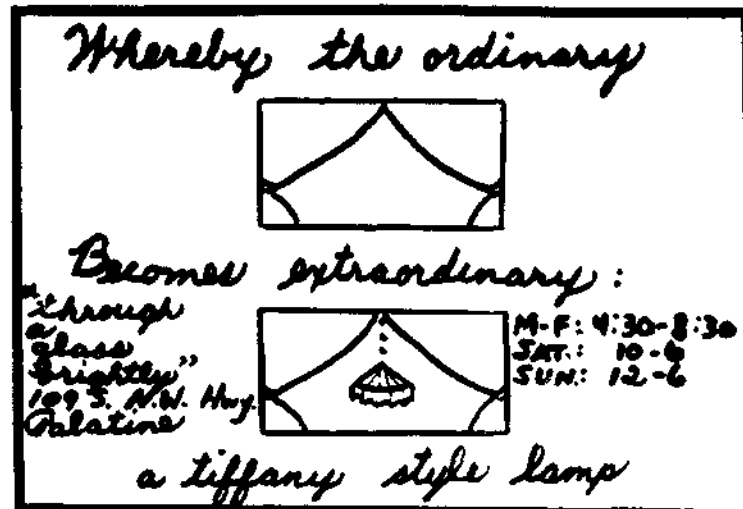 Whereby the ordinary
Becomes extraordinary:
"through
a
glass
brightly"
109 S. N.W. Hwy.
Palatine
M-F: 4:30-8:30
SAT.: 10-6
SUN.: 12-6
a tiffany style lamp